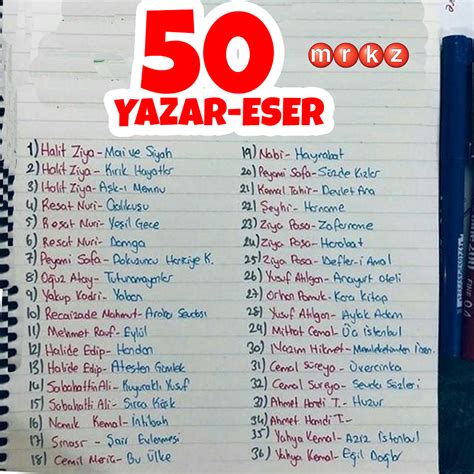 50
YAZAR-ESER
mrkz
1) Halit Ziya - Mai ve Siyah
2) Halit Ziya - Kırık Hayatlar
3) Halit Ziya - Aşk-ı Memnu
4) Reşat Nuri - Çalıkuşu
5) Reşat Nuri - Yeşil Gece
6) Reşat Nuri - Damga
7) Peyami Safa - Dokuzuncu Hariciye K.
8) Oğuz Atay - Tutunamayanlar
9) Yakup Kadri - Yaban
10) Recaizade Mahmut - Araba Sevdası
11) Mehmet Rauf - Eylül
12) Halide Edip - Handan
13) Halide Edip - Ateşten Gömlek
14) Sabahattin Ali - Kuyucaklı Yusuf
15) Sabahattin Ali - Sırça Köşk
16) Namık Kemal - İntibah
17) Şinasi - Şair Evlenmesi
18) Cemil Meriç - Bu Ülke
19) Nabi - Hayrabat
20) Peyami Safa - Sözde Kızlar
21) Kemal Tahir - Devlet Ana
22) Şeyhi - Harname
23) Ziya Paşa - Zafername
24) Ziya Paşa - Harabat
25) Ziya Paşa - Defter-i Amal
26) Yusuf Atılgan - Anayurt Oteli
27) Orhan Pamuk - Kara Kitap
28) Yusuf Atılgan - Aylak Adam
29) Mithat Cemal - Üç İstanbul
30) Nazım Hikmet - Memleketimden İnsan.
31) Cemal Süreya - Üvercinka
32) Cemal Süreya - Sevda Sözleri
33) Ahmet Hamdi T. - Huzur
34) Ahmet Hamdi T. -
35) Yahya Kemal - Aziz İstanbul
36) Yahya Kemal - Eğil Dağlar